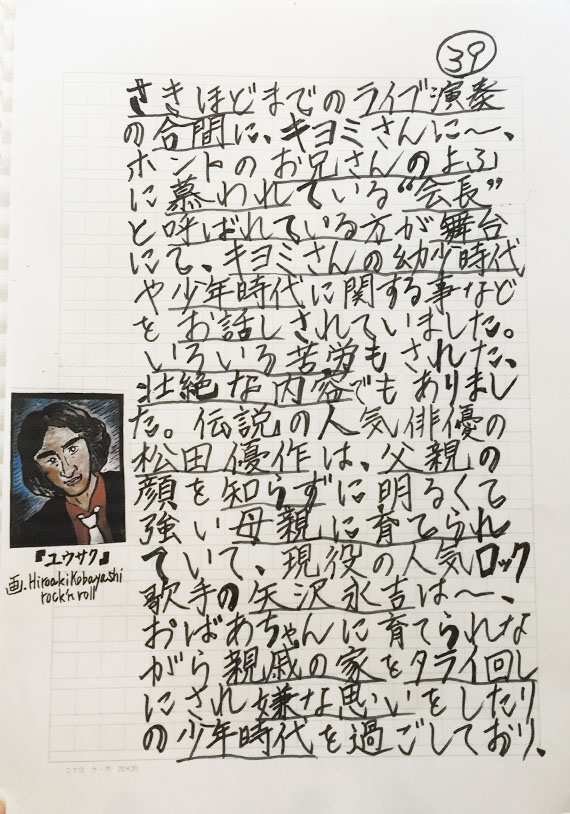 39
さきほどまでのライブ演奏
の合間に、キヨミさんに〜、
ホントのお兄さんのよふ
に慕われている“会長”
と呼ばれている方が舞台
にて、キヨミさんの幼少時代
や少年時代に関する事など
をお話しされていました。
いろいろ苦労もされた、
壮絶な内容でもありまし
た。伝説の人気俳優の
松田優作は、父親の
顔を知らずに明るくて
強い母親に育てられ
ていて、現役の人気ロック
歌手の矢沢永吉は〜、
おばあちゃんに育てられな
がら親戚の家をタライ回し
にされ嫌な思いをしたり
の少年時代を過ごしており、
『ユウサク』
画.Hiroaki Kobayashi
rock'n roll
コクヨ ケ-75 20×20